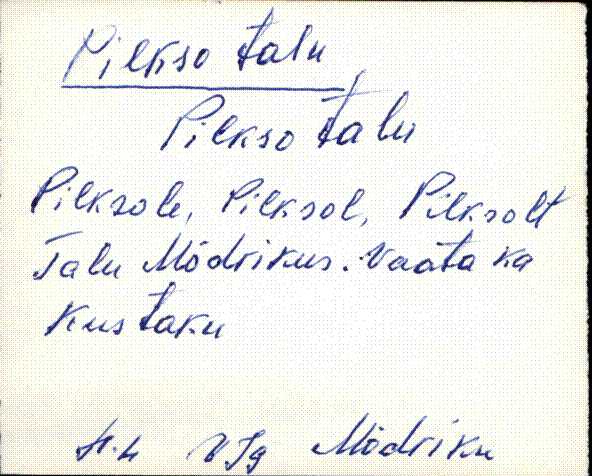 Pilkso talu
Pilkso talu
Pilksole, Pilksol, Pilksolt
Talu Mõdrikus. Vaata ka
Kustaku
VJg Mõdriku